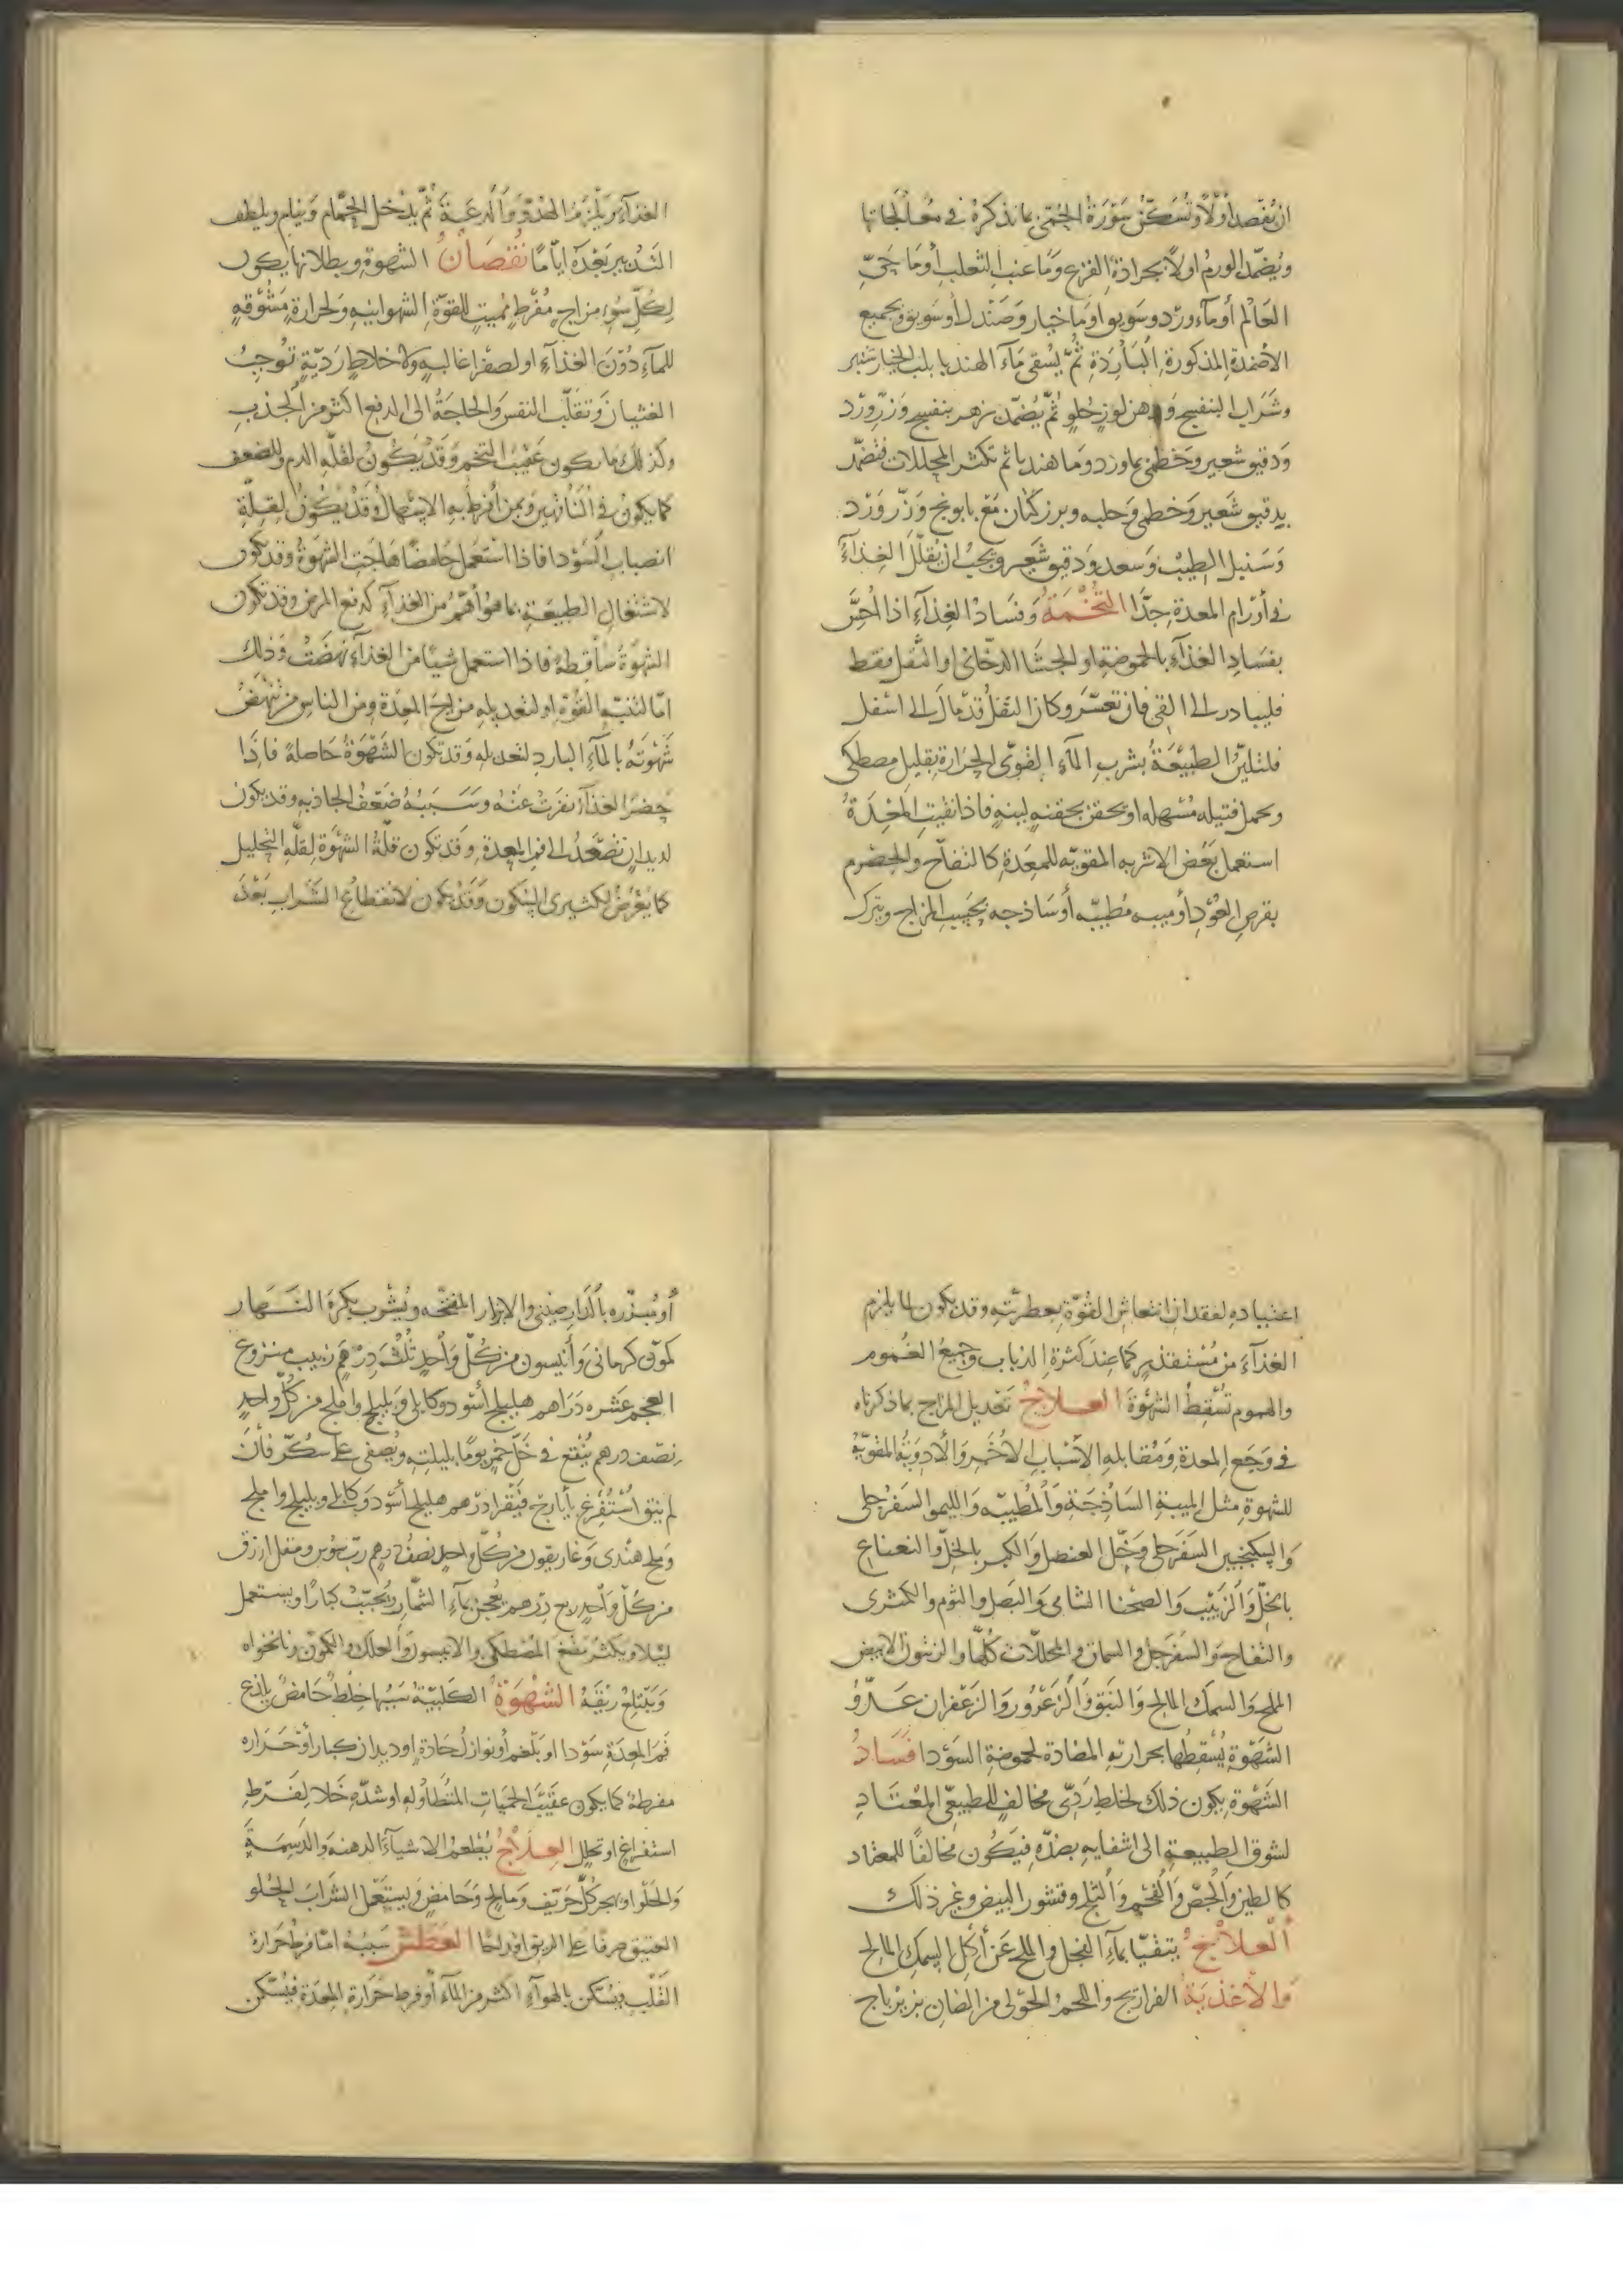 ان يُفصد أولًا وتُسكّن سَورة الحُمّى بما نذكره في معالجاتها
ويُضمّد الورم أولًا بجرادة القرع وما عنب الثعلب أو ما حيّ
العالم أو مآء ورد وسويق أو ما خيار وصندل أو سويق وبجميع
الأضمدة المذكورة الباردة ثمّ يُسقى مآء الهندبا بلب الخيار شنبر
وشراب البنفسج ودهن لوز حلو ثمّ يُضمّد بزهر بنفسج وزرّ ورد
ودقيق شعير وخطمى بماورد وما هندبا ثم تكثر المحللات فتضمّد
بدقيق شعير وخطمى وحلبه وبزر كتان مع بابونج وزرّ ورد
وسنبل الطيب وسعد ودقيق شعير ويجب ان يُقلّل الغذآء
في أورام المعدة جدًّا التخمة وفساد الغذآء اذا أُحسّ
بفساد الغذآء بالحموضة او الجشا الدخانى او الثقل فقط
فليبادر الى القى فان تعسّر وكان الثقل قد مال الى اسفل
فلتليّن الطبيعة بشرب المآء القوىّ الحرارة بقليل مصطكى
وتحمل فتيله مُسهله او يحقن بحقنه لينه فاذا نقيت المعدة
استعمل بعض الاشربه المقويّه للمعدة كالتفّاح والحصرم
بقرص العود أو ميبه مُطيبّه أو ساذجه بحسب المزاج ويترك
الغذآء ويلزم الهدوّ والدعة ثمّ يدخل الحمّام وينام ويلطف
التدبير بعده ايامًا نُقصانُ الشهوة وبطلانها يكون
لكُلّ سُوء مزاج مُفرط مُميت للقوّة الشهوانيه ولحرارة مشوّقه
للمآء دُون الغذآء او لصفرا غالبه ولاخلاط رديّة تُوجبُ
الغثيان وتقلّب النفس والحاجة الى الدفع اكثر من الجذب
وكذلك ما يكون عقيب التخم وقد يكون لقلّه الدم وللضعف
كما يكون في الناقهين وبمن أُفرط به الاسهال وقد يكون لقلّة
انصباب السّودا فاذا استعمل حامضًا هاجت الشهوة وقد يكون
لاشتغال الطبيعة بما هو أهمّ من الغذآء كدفع المرض وقد تكون
الشهوة ساقطه فاذا استعمل شيًا من الغذآء نهضت وذلك
امّا لتنبّه القوّة او لتعديله مزاج المعدة ومن الناس من تنهض
شهوته بالمآء البارد لتعديله وقد تكون الشهوة حاصلة فاذا
حضر الغذآء نفرت عنه وسببه ضعف الجاذبه وقد يكون
لديدان تصعد الى فم المعدة وقد تكون قلّة الشهوة لقلّه التحليل
كما يعرض لكثيرى السّكون وقد يكون لانقطاع الشراب بعد
اعتياده لفقدان انتعاش القوّة بعطريّته وقد يكون لما يلزم
الغذآء من مُستقذر كما عند كثرة الذباب وجميع الغموم
والهموم تسقط الشهوة العلاج تعديل المزاج بما ذكرناه
في وجع المعدة ومقابله الأسباب الأُخر والأدوية المقويّة
للشهوة مثل الميبة الساذجة والمطيبّه والليمو السفرجلى
والسكنجبين السفرجلى وخلّ العنصل والكبر بالخلّ والنعناع
بالخلّ والزبيب والصحنا الشامى والبصل والثوم والكمثرى
والتفاح والسفرجل والسمان والمخللات كلّها والزيتون الابيض
المملح والسمك المالح والنبق والزعرور والزعفران عدوّ
الشهوة يسقطها بحرارته المضادة لحموضة السودا فسادُ
الشهوة يكون ذلك لخلط ردىّ مخالف للطبيعىّ المعتاد
لشوق الطبيعة الى اشفايه بضدّه فيكون مخالفًا للمعتاد
كالطين والجصّ والفحم والثلج وقشور البيض وغير ذلك
العلاج يتقيّا بمآء الفجل والملح عن أكل السمك المالح
والأغذية الفراريج واللحم الحولى من الضان بزيرباج
أو مُبزّره بالدارصينى والابزار المنقحه ويُشرب بكرة النهار
كمون كرمانى وأنيسون من كلّ واحد ثُلث درهم زبيب منزوع
العجم عشره دراهم هليلج أسود وكابلى وبليلج واملج من كلّ واحد
نصف درهم يُنقع في خلّ خمر يومًا بليلته ويُصفى على سكّر فأن
لم ينق استُفرغ بأيارج فيقرا درهم هليلج أسود وكابلى وبليلج واملج
وملح هندى وغاريقون من كلّ واحد نصف درهم ربّ سوس ومقل ازرق
من كلّ واحد ربع درهم يعجن بمآء الشمار ويُحبّب كبارًا ويستعمل
ليلا ويكثر مضغ المصطكى والانيسون والعلك والكمون ونانخواه
ويبتلع ريقه الشهوةُ الكلبيّة سببها خلط حامض يلذع
فم المعدة سودا او بلغم أو نوازل حادة او ديدان كبار أو حراره
مفرطة كما يكون عقيب الحميات المتطاوله او شدّه خلا لفرط
استفراغ او تحلل العلاج يُطعم الاشيآء الدهنه والدسمة
والحلوا ويهجر كل حرّيف ومالح وحامض ويستعمل الشراب الحلو
العتيق صرفا على الريق او دايما العطش سببه امّا فرط حرارة
القلب فيسكن بالهوآء اكثر من المآء أو فرط حرارة المعدة فيسكن